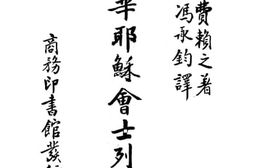 費賴之著
馮承鈞譯
華耶穌會士列
商務印書館發